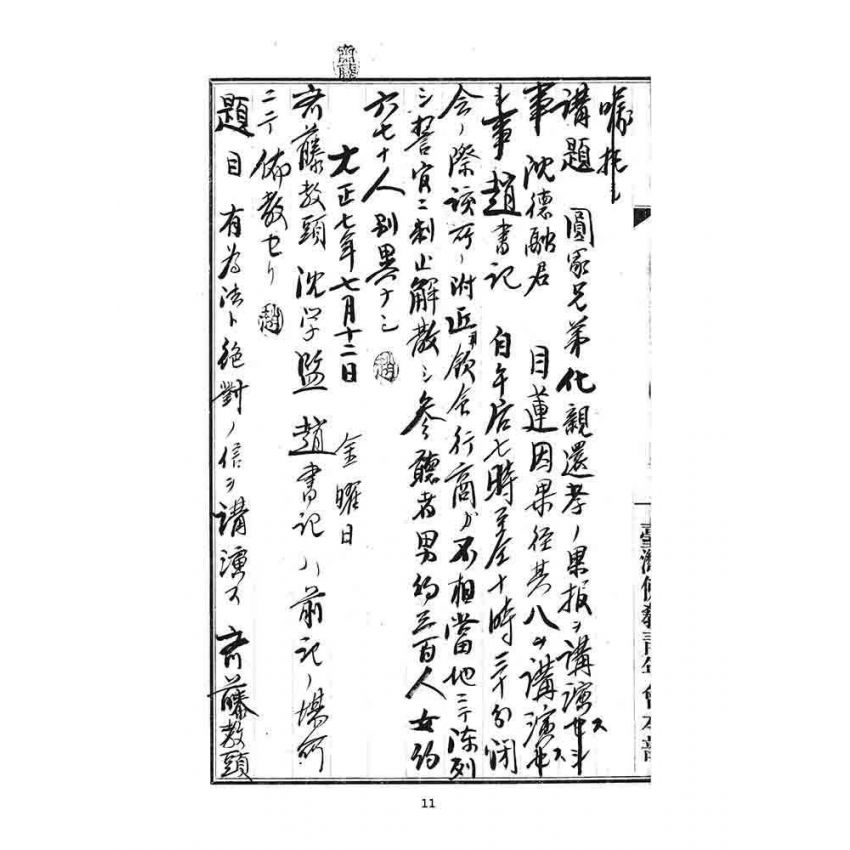 囑托
講題 圓家兄弟化親還孝ノ果報ヲ講演セシ
事 沈德融君 目蓮因果径其八ヲ講演セシ
事 趙書記 自午后七時至仝十時三十分閉
会ノ際該所ノ附近ヨリ飲食行商ガ不相當地ニテ陳列
シ警官ニ制止解散シ參聽者男約三百人女約
六七十人別異ナシ
大正七年七月十二日 金曜日
斉藤教頭 沈学監 趙書記ハ前記ノ場所
ニテ佈教セリ
題目 有為法ト絶對ノ信ヲ講演ス 斉藤教頭
臺灣佛教青年會本部
11